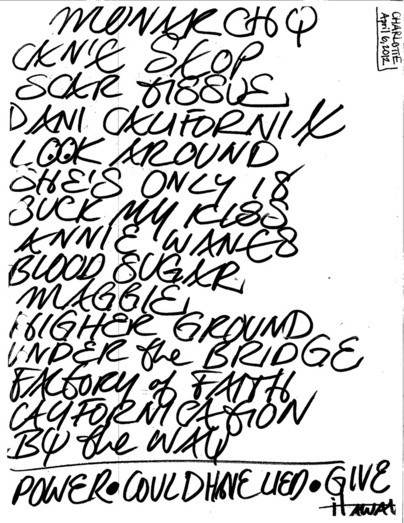 CHARLOTTE
April 6, 2012
MONARCHY
CAN'T STOP
SCAR TISSUE
DANI CALIFORNIA
LOOK AROUND
SHE'S ONLY 18
SUCK MY KISS
ANNIE WANTS
BLOOD SUGAR
MAGGIE
HIGHER GROUND
UNDER the BRIDGE
FACTORY of FAITH
CALIFORNICATION
BY the WAY
POWER • COULD HAVE LIED • GIVE
it AWAY